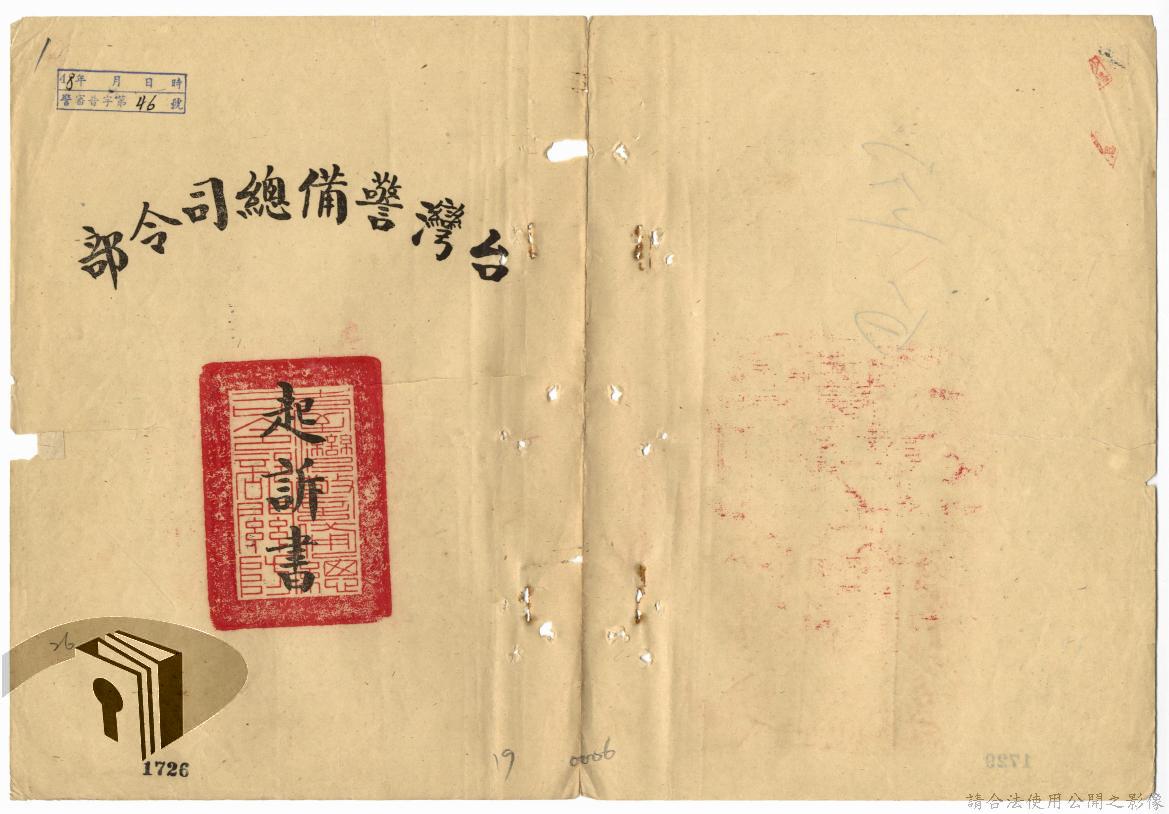 48年 月 日 時
警審昔字第46號
台灣警備總司令部
起訴書
26
1726
19
0006
請合法使用公開之影像